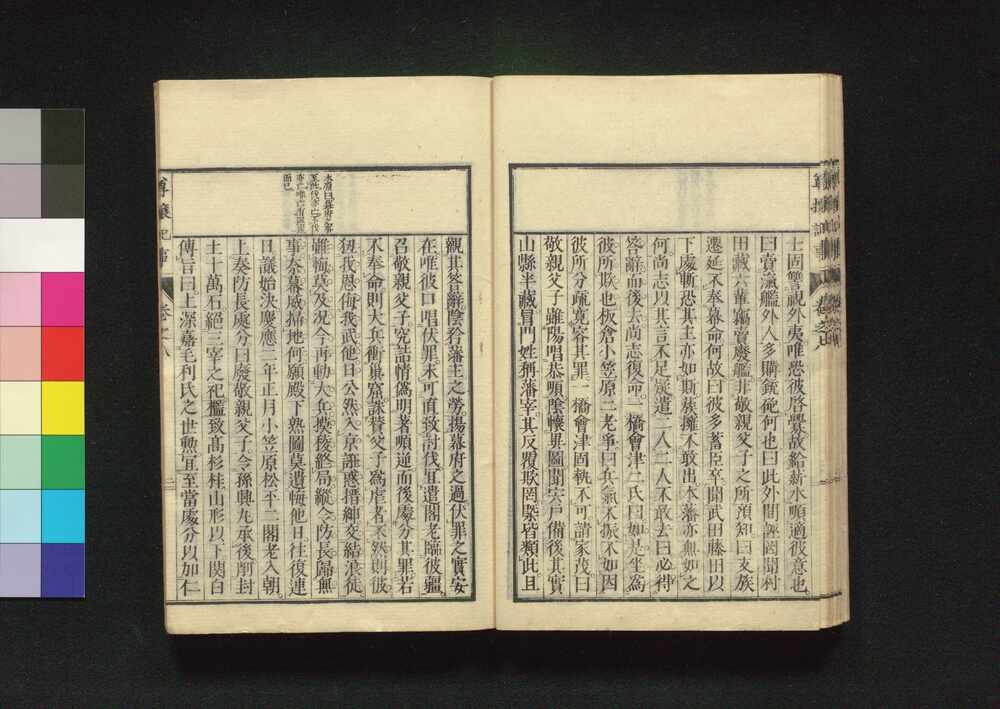 士固讐視外夷唯恐彼啓釁故給薪水順適彼意也
曰賣滊艦外人多購銃砲何也曰此外間誣罔聞村
田藏六輩竊賣廢艦非敬親父子之所預知曰支族
遷延不奉幕命何故曰彼多蓄臣卒聞武田藤田以
下處斬恐其主亦如斯蔟擁不敢出本藩亦無如之
何尚志以其言不足疑遣二人二人不敢去曰必得
答辭而後去尚志復命一橋會津二氏曰如是坐爲
彼所欺也板倉小笠原二老争曰兵氣不振不如因
彼所分疏寛容其罪一橋會津固執不可請家茂曰
敬親父子雖陽唱恭順陰懷異圖聞宍戸備後其實
山縣半藏冒門姓稱藩宰其反覆欺罔槩皆類此且
觀其答辭陰矜藩主之勞揚幕府之過伏罪之實安
在唯彼口唱伏罪未可直致討伐宜遣閣老臨彼疆
召敬親父子究詰情僞明著順逆而後處分其罪若
不奉命則大兵衝巢窟誅賛父子爲虐者不然則彼
狃我恩侮我武他日公然入京讙惑搢紳交結浪徒
雖悔莫及況今再動大兵模稜終局縱令防長歸無
事奈幕威掃地何願殿下熟圖莫遺悔他日往復連
日議始決慶應二年正月小笠原松平二閣老入朝
上奏防長處分曰廢敬親父子令孫興丸承後削封
土十萬石絕三宰之祀檻致高杉桂山形以下關白
傳旨曰上深嘉毛利氏之世勲宜至當處分以加仁
尊攘紀事
卷之八